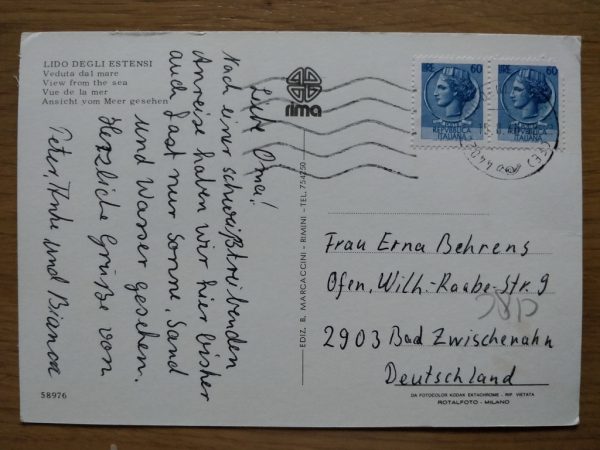 LIDO DEGLI ESTENSI
Veduta dal mare
View from the sea
Vue de la mer
Ansicht vom Meer gesehen
rima
60
60
REPVBBLICA
ITALIANA
REPVBBLICA
ITALIANA
Liebe Oma!
Nach einer schweißtreibenden
Anreise haben wir hier bisher
auch fast nur Sonne, Sand
und Wasser gesehen.
Herzliche Grüße von
Peter, Anke und Bianca
EDIZ. B. MARCACCINI - RIMINI - TEL. 754250
Frau Erna Behrens
Ofen, Wilh.-Raabe-Str. 9
2903 Bad Zwischenahn
Deutschland
58976
DA FOTOCOLOR KODAK EKTACHROME - RIP. VIETATA
ROTALFOTO - MILANO